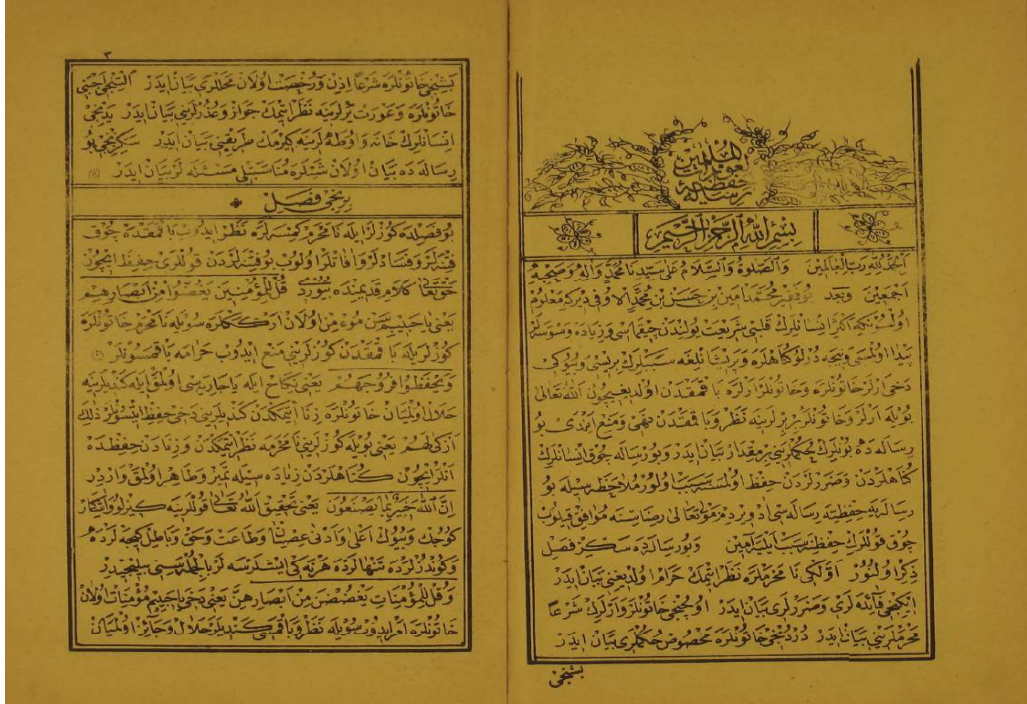 لعون رب المسلمين
رسالة حفظية
بسم الله الرحمن الرحيم
الحمد لله رب العالمين والصلوة والسلام على سيدنا محمد واله وصحبه
اجمعين وبعد بو فقير محمد امين بن حسن بن محمد الاوفى ديركه معلوم
اولسونكه اكثر انسانلرك قلبى شريعت يولندن چيقماسى وزياده وسوسه لر
پيدا اولمسى ونيجه درلو كناهلره وپريشانلغه سببلرك بريسى وبيوكى
دخى ارلر خاتونلره وخاتونلر ارلره باقمقدن اولديغيچون الله تعالى
بويله ارلر وخاتونلر بربرلرينه نظر وباقمقدن نهى ومنع ايتدى بو
رساله ده بونلرك حكملرينى بر مقدار بيان ايدر وبو رساله چوق انسانلرك
كناهلردن وضررلردن حفظ اولمسنه سبب اولور ملاحظه سيله بو
رساله يه حفظيه رساله سى اد ويردم حق تعالى رضاسنه موافق قيلوب
چوق قوللرك حفظنه سبب ايليه آمين وبو رسالده سكز فصل
ذكر اولنور اولكى نا محرملره نظر ايتمك حرام اولديغنى بيان ايدر
ايكنجى فائده لرى وضررلرى بيان ايدر اوچنجى خاتونلر وارلرك شرعا
محرملرينى بيان ايدر دردنجى خاتونلره مخصوص حكملرى بيان ايدر
بشنجى
٣
بشنجى خاتونلره شرعا اذن ورخصت اولان محللرى بيان ايدر التنجى اجنبى
خاتونلره وعورت يرلرينه نظر ايتمك جواز وعذرلرينى بيان ايدر يدنجى
انسانلرك خانه واوطه لرينه كيرمك طريقنى بيان ايدر سكزنجى بو
رساله ده بيان اولان شيلره مناسبتلى مسئله لر بيان ايدر
برنجى فصل
بو فصلده كوزلر ايله نا محرم كمسه لره نظر ايدوب باقمقده چوق
فتنه لر وفسادلر وآفاتلر اولوب بو فتنه لردن قوللرى حفظ ايچون
حق تعالى كلام قديمنده بيوردى قل للمؤمنين يغضوا من ابصارهم
يعنى يا حبيبيم سن مؤمن اولان ارككلره سويله نا محرم خاتونلره
كوزلريله باقمقدن كوزلرينى منع ايدوب حرامه باقمسونلر
ويحفظوا فروجهم يعنى نكاح ايله يا جاريه سى اولمق ايله كنديلرينه
حلال اولميان خاتونلره زنا ايتمكدن كنديلرينى دخى حفظ ايتسونلر ذلك
ازكى لهم يعنى بويله كوزلرينى نا محرمه نظر ايتمكدن وزنادن حفظده
انلر ايچون كناهلردن زياده سيله تميز وطاهر اولمق واردر
ان الله خبير بما يصنعون يعنى تحقيق الله تعالى قوللرينه كيزلو واشكار
كوچك وبيوك اعلى وادنى عصيان وطاعت وحق وباطل كيجه لرده
وكوندزلرده تنهالرده هر نه كى ايشلرسه لر بالجمله سنى بيليجيدر
وقل للمؤمنات يغضضن من ابصارهن يعنى دخى يا حبيبم مؤمنات اولان
خاتونلره امر ايدوب سويله نظر وباقمسى كنديلره حلال وجائز اولميان